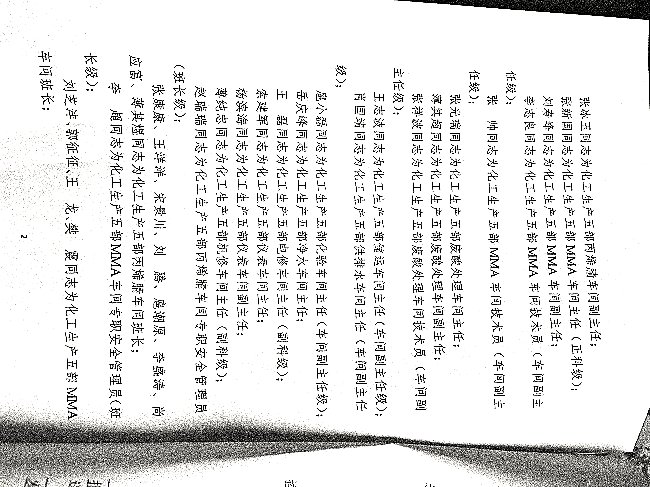 张冰玉同志为化工生产五部丙烯腈车间副主任；
张新国同志为化工生产五部MMA车间主任（正科级）；
刘寿峰同志为化工生产五部MMA车间主任；
李志良同志为化工生产五部MMA车间技术员（车间副主
任级）；
张 帅同志为化工生产五部MMA车间技术员（车间副主
任级）；
张元瑞同志为化工生产五部废酸处理车间主任；
薄其超同志为化工生产五部废酸处理车间副主任；
张祥波同志为化工生产五部废酸处理车间技术员（车间副
主任级）；
王志波同志为化工生产五部储运车间主任（车间副主任级）；
肖国涛同志为化工生产五部供排水车间主任（车间副主任
级）；
扈小磊同志为化工生产五部化验车间主任（车间副主任级）；
岳庆峰同志为化工生产五部净水车间主任；
王 磊同志为化工生产五部电修车间主任（副科级）；
宋建军同志为化工生产五部仪表车间主任；
杨滨涛同志为化工生产五部仪表车间副主任；
薄纯忠同志为化工生产五部机修车间主任（副科级）；
赵瑞瑞同志为化工生产五部丙烯腈车间专职安全管理员
（班长级）；
张康康、王洋洋、 刘 、李盛涛、尚
应富、 同志为化工生产五部丙烯腈车间班长；
李 超同志为化工生产五部MMA车间专职安全管理员（班
长级）；
刘芝洪、郭征征、王 龙、樊 震同志为化工生产五部MMA
车间班长；
2